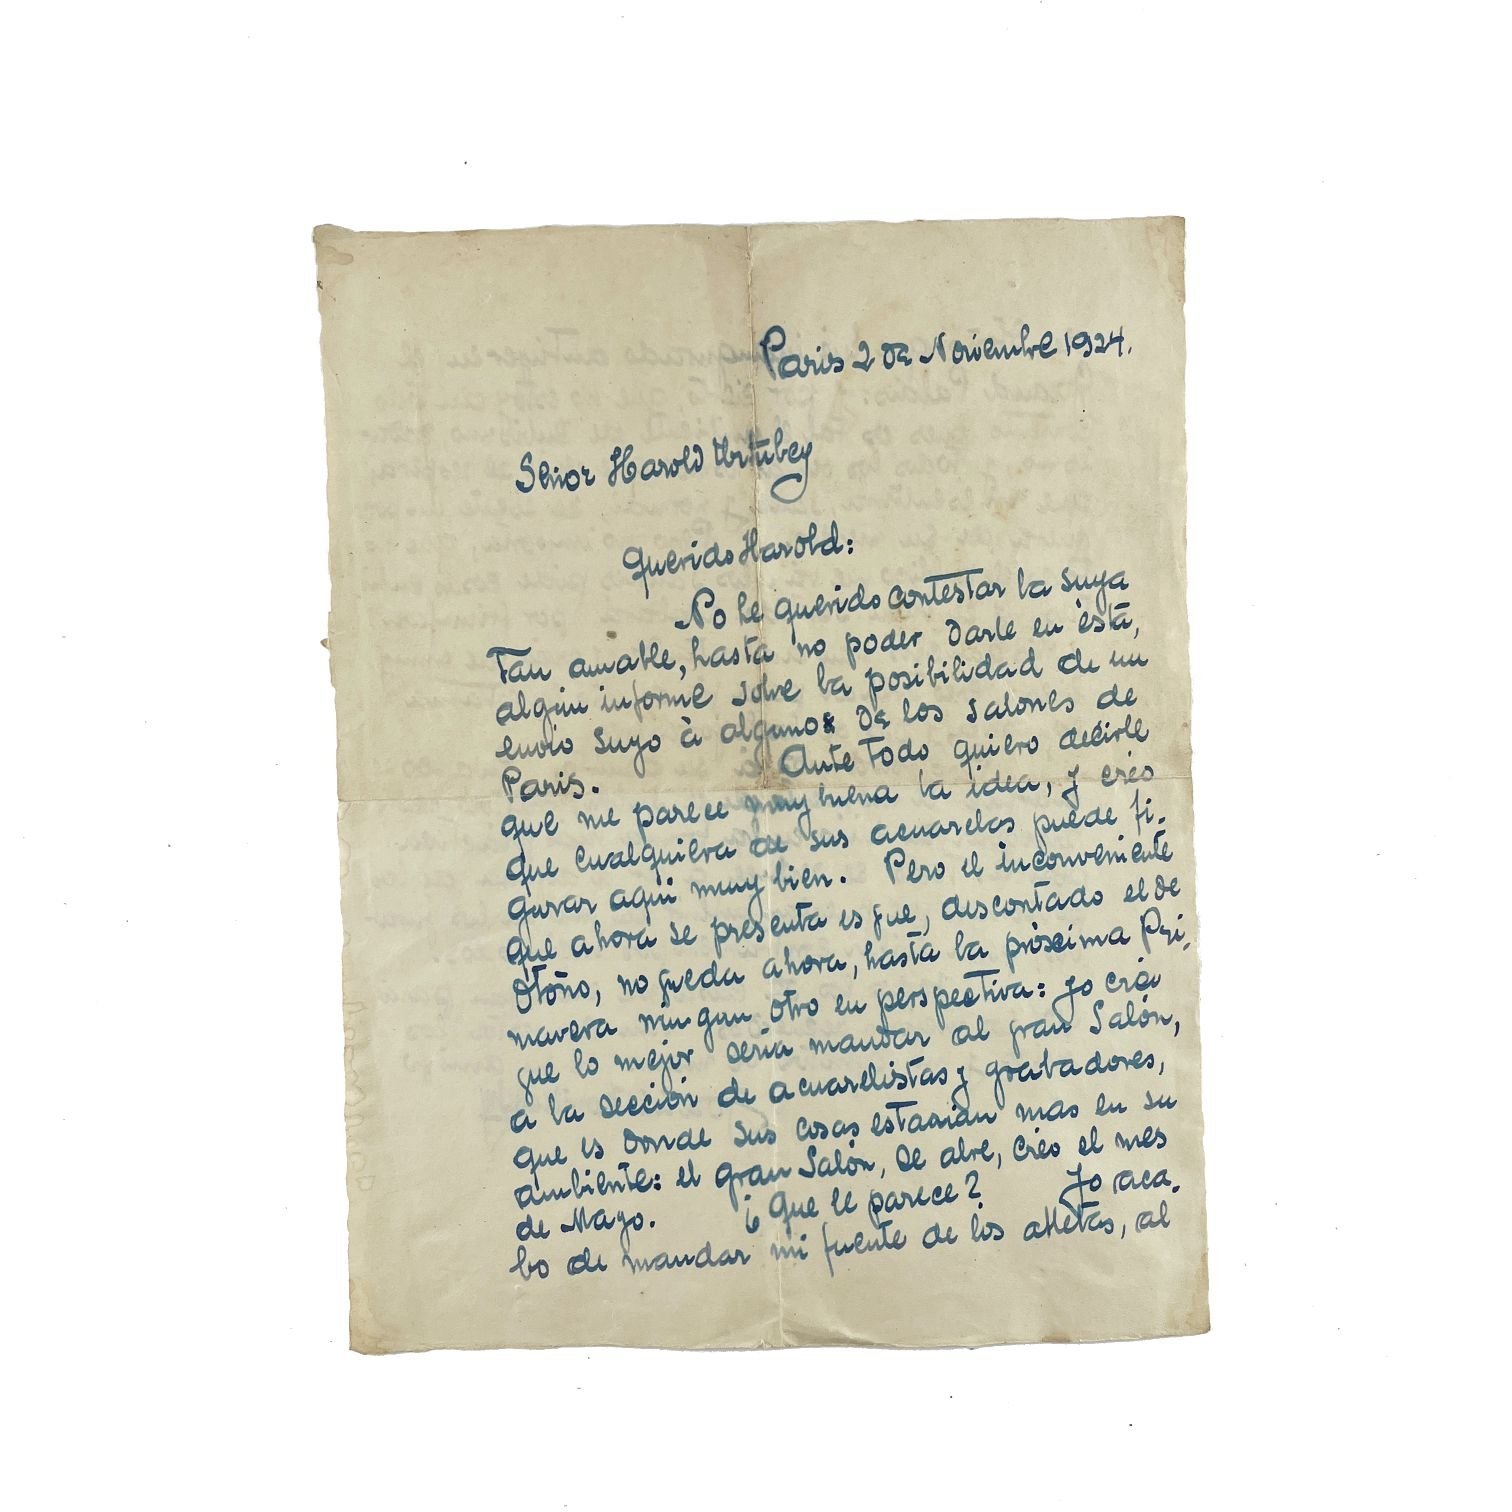 Paris 2 de Noviembre 1924.
Señor Harold Urtubey
Querido Harold:
No he querido contestar la suya
Tan amable, hasta no poder darle en ésta,
algún informe sobre la posibilidad de un
envio suyo à algunos de los salones de
Paris. Ante todo quiero decirle
que me parece muy buena la idea, y creo
que cualquiera de sus acuarelas puede fi-
gurar aquí muy bien. Pero el inconveniente
que ahora se presenta es que, descontado el de
Otoño, no queda ahora, hasta la próxima Pri-
mavera ningun otro en perspectiva: yo creo
que lo mejor seria mandar al gran Salón,
a la sección de acuarelistas y grabadores,
que es donde sus cosas estarián mas en su
ambiente: el gran Salón, se abre, creo el mes
de Mayo. ¿Que le parece? Yo aca-
bo de mandar mi fuente de los atletas, al